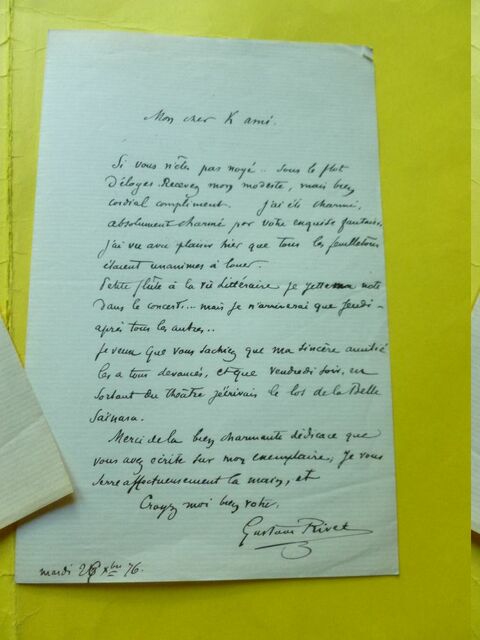 Mon cher K ami.
Si vous n'êtes pas noyé .. sous le flot
d'éloges. Recevez mon modeste, mais bien
cordial compliment. J'ai été charmé,
absolument charmé par votre exquise fantaisie,
j'ai vu avec plaisir hier que tous les feuilletons
étaient unanimes à louer.
Petite flûte à la Vie Littéraire je jette ma note
dans le concert... mais je n'arriverai que Jeudi -
après tous les autres..
Je veux que vous sachiez que ma sincère amitié
les a tous devancés, et que vendredi soir, en
sortant du théâtre j'écrivais le los de la Belle
Saïnara.
Merci de la bien charmante dédicace que
vous avez écrite sur mon exemplaire, Je vous
serre affectueusement la main, et
Croyez moi bien vôtre.
Gustave Rivet
mardi Xbre 76.